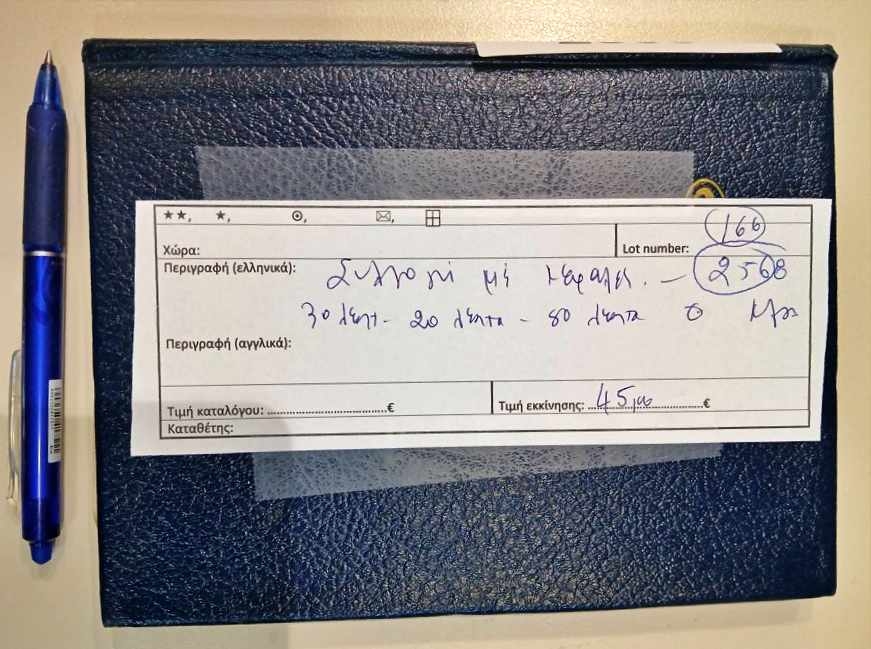 ★★, ★, ⊙, ✉, ⊞
166
Χώρα: Lot number:
Περιγραφή (ελληνικά): Συλλογή μέ κεφαλές. — 2568
30 λεπτ - 20 λεπτα - 80 λεπτα
Περιγραφή (αγγλικά):
Τιμή καταλόγου: ....................................€ Τιμή εκκίνησης: 45,00 €
Καταθέτης: